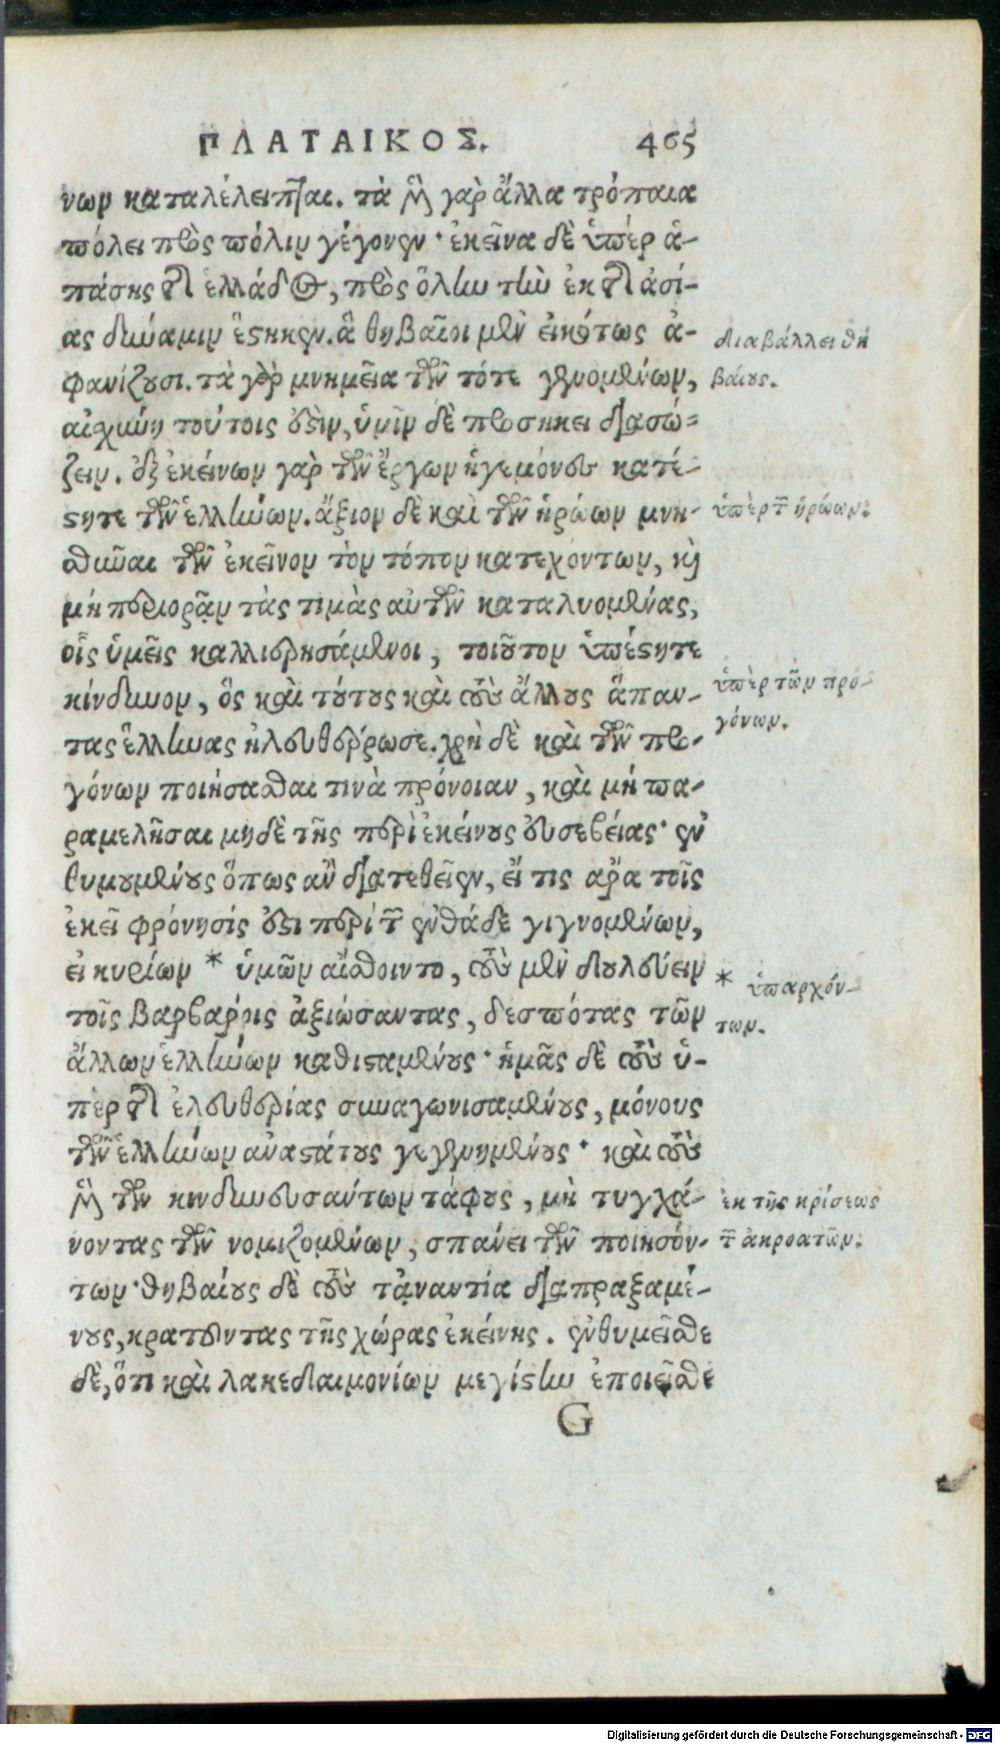 ΠΛΑΤΑΙΚΟΣ. 465
νων καταλέλειπται. τὰ μὲν γὰρ ἄλλα τρόπαια
πόλει πρὸς πόλιν γέγονεν· ἐκεῖνα δὲ ὑπὲρ ἁ-
πάσης τῆς ἑλλάδος, πρὸς ὅλην τὴν ἐκ τῆς ἀσί-
ας δύναμιν ἕστηκεν. ἃ θηβαῖοι μὲν εἰκότως ἀ-
φανίζουσι. τὰ γὰρ μνημεῖα τῶν τότε γενομένων,
αἰσχύνη τούτοις ἐστὶν, ὑμῖν δὲ προσήκει διασώ-
ζειν. ἐξ ἐκείνων γὰρ τῶν ἔργων ἡγεμόνες κατέ-
στητε τῶν ἑλλήνων. ἄξιον δὲ καὶ τῶν ἡρώων μνη-
σθῆναι τῶν ἐκεῖνον τὸν τόπον κατεχόντων, καὶ
μὴ περιορᾷν τὰς τιμὰς αὐτῶν καταλυομένας,
οἷς ὑμεῖς καλλιερησάμενοι, τοιοῦτον ὑπέστητε
κίνδυνον, ὃς καὶ τούτους καὶ τοὺς ἄλλους ἅπαν-
τας ἕλληνας ἠλευθέρωσε. χρὴ δὲ καὶ τῶν προ-
γόνων ποιήσασθαι τινὰ πρόνοιαν, καὶ μὴ πα-
ραμελῆσαι μηδὲ τῆς περὶ ἐκείνους εὐσεβείας· ἐν
θυμουμένους ὅπως ἂν διατεθεῖεν, εἴ τις ἄρα τοῖς
ἐκεῖ φρόνησίς ἐστι περὶ τῶν ἐνθάδε γιγνομένων,
εἰ κυρίων * ὑμῶν αἴσθοιντο, τοὺς μὲν δουλεύειν
τοῖς βαρβάροις ἀξιώσαντας, δεσπότας τῶν
ἄλλων ἑλλήνων καθισαμένους· ἡμᾶς δὲ τοὺς ὑ-
πὲρ τῆς ἐλευθερίας συναγωνισαμένους, μόνους
τῶν ἑλλήνων ἀναστάτους γεγενημένους· καὶ τοὺς
μὲν τῶν κινδυνευσάντων τάφους, μὴ τυγχά-
νοντας τῶν νομιζομένων, σπάνει τῶν ποιησόν-
των· θηβαίους δὲ τοὺς τἀναντία διαπραξαμέ-
νους, κρατοῦντας τῆς χώρας ἐκείνης. ἐνθυμεῖσθε
δὲ, ὅτι καὶ λακεδαιμονίων μεγίστην ἐποιεῖσθε
G
διαβάλλει θη
βαίους.
ὑπὲρ τῶν ἡρώων.
ὑπὲρ τῶν προ-
γόνων.
* ὑπαρχόν-
των.
ἐκ τῆς κρίσεως
τῶν ἀκροατῶν.
Digitalisierung gefördert durch die Deutsche Forschungsgemeinschaft - DFG